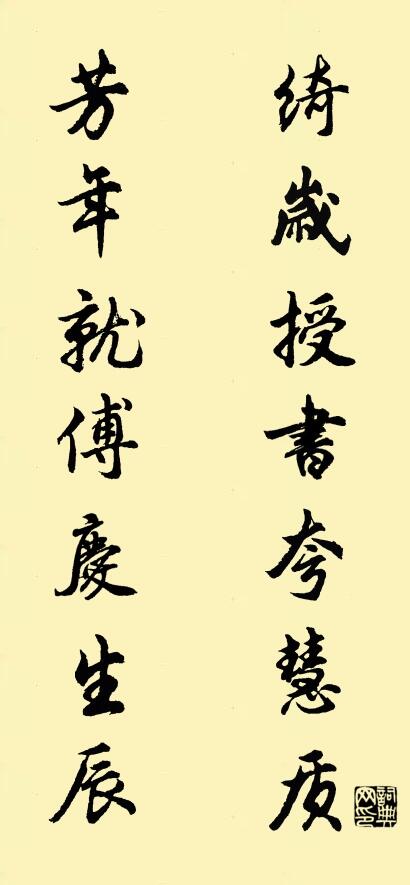 綺歲授書夸慧质
芳年就傅慶生辰
詞典网印